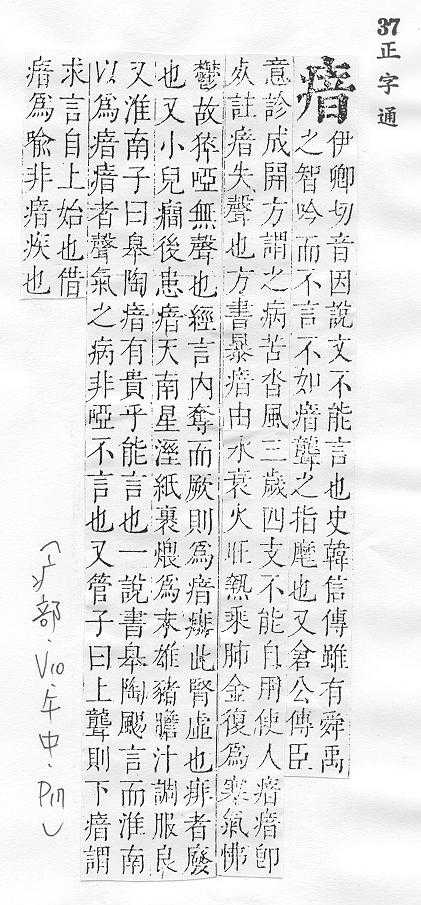 37 正字通
瘖
伊卿切音因說文不能言也史韓信傳雖有舜禹
之智吟而不言不如瘖聾之指麾也又倉公傳臣
意診成開方謂之病苦沓風三歲四支不能自用使人瘖瘖卽
死註瘖失聲也方書暴瘖由水衰火旺熱乘肺金復爲寒氣怫
鬱故猝啞無聲也經言內奪而厥則爲瘖痱此腎虛也痱者廢
也又小兒癎後患瘖天南星溼紙裹煨爲末雄豬膽汁調服良
又淮南子曰皋陶瘖有貴乎能言也一說書皋陶颺言而淮南
以爲瘖瘖者聲氣之病非啞不言也又管子曰上聾則下瘖謂
求言自上始也借
瘖爲喩非瘖疾也
(疒部·V10·午中·P111)